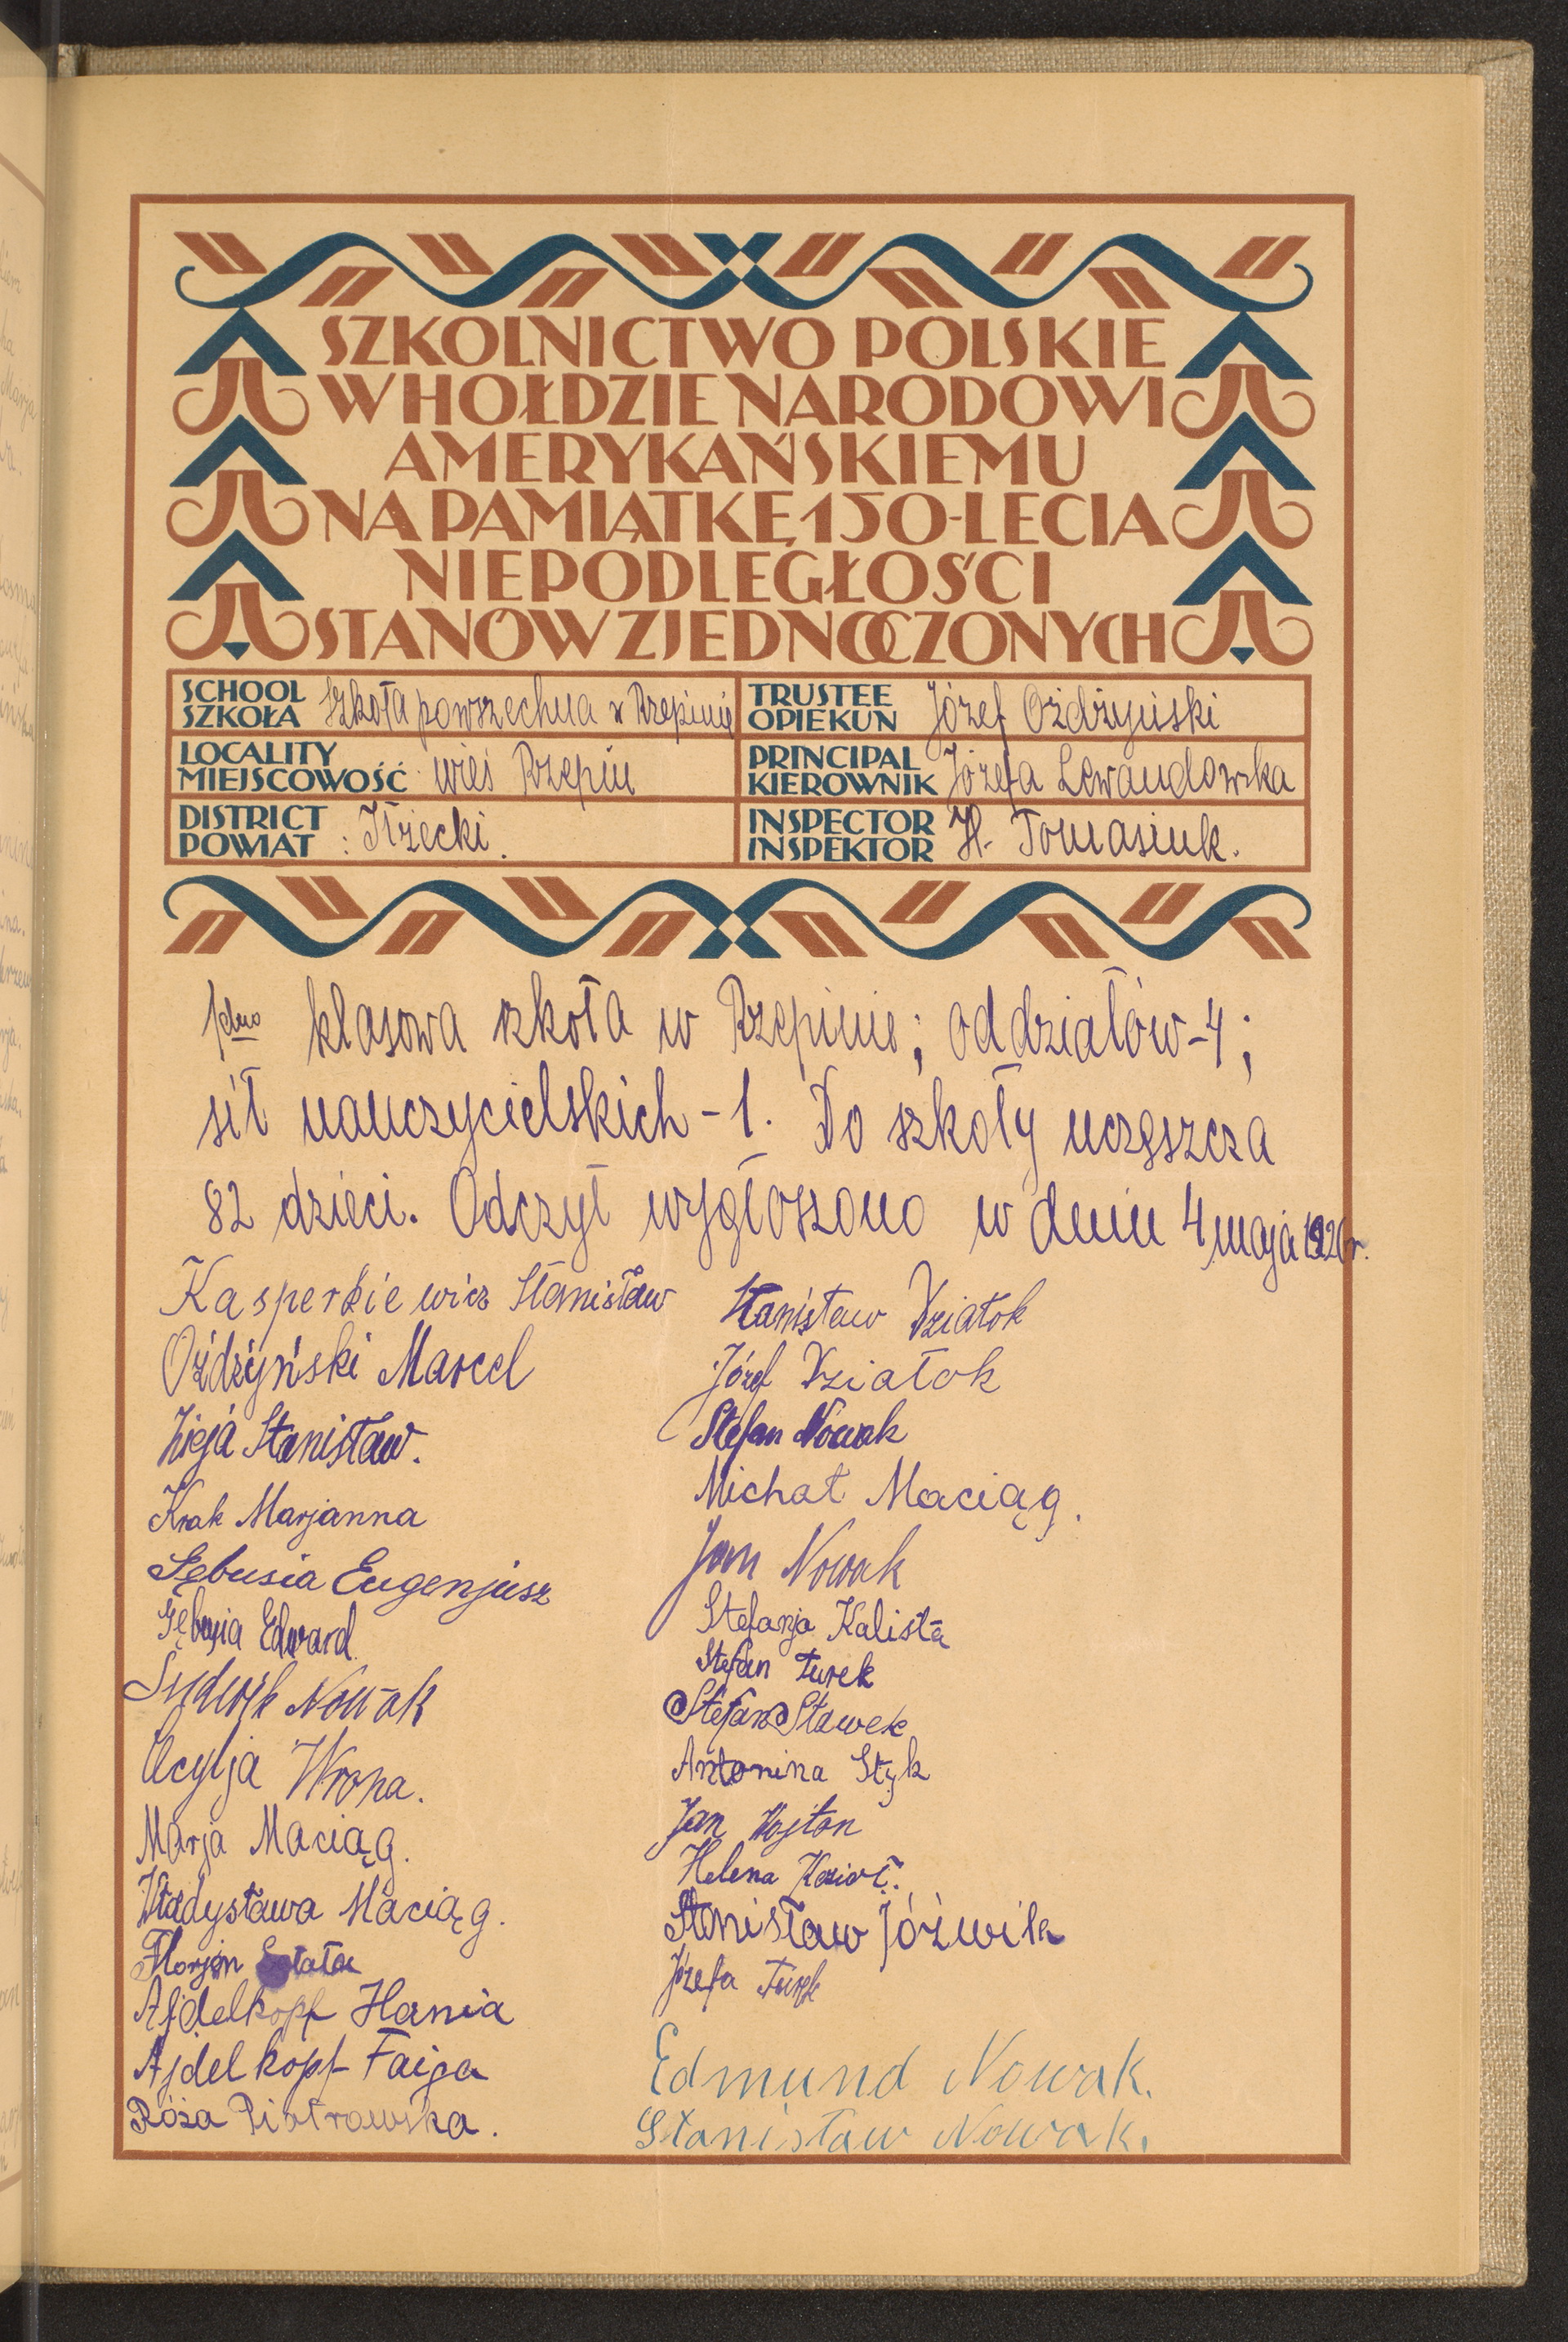 SZKOLNICTWO POLSKIE
W HOŁDZIE NARODOWI
AMERYKAŃSKIEMU
NA PAMIĄTKĘ 150-LECIA
NIEPODLEGŁOŚCI
STANÓW ZJEDNOCZONYCH
SCHOOL
SZKOŁA Szkoła powszechna w Rzepinie
TRUSTEE
OPIEKUN Józef Ożdżyński
LOCALITY
MIEJSCOWOŚĆ wieś Rzepin
PRINCIPAL
KIEROWNIK Józefa Lewandowska
DISTRICT
POWIAT : Iłżecki.
INSPECTOR
INSPEKTOR H. Tomasiuk.
1dno klasowa szkoła w Rzepinie; oddziałów-4;
sił nauczycielskich-1. Do szkoły uczęszcza
82 dzieci. Odczyt wygłoszono w dniu 4 maja 1926r.
Kasperkiewicz Stanisław
Ożdżyński Marcel
Zieja Stanisław.
Krak Marjanna
Gębusia Eugenjusz
Gębusia Edward
Ludwik Nowak
Wrona.
Marja Maciąg.
Władysława Maciąg.
Florjan
Ajdelkopf Hania
Ajdelkopf Faiga
Róża Piotrowska.
Stanisław Dziatok
Józef Dziatok
Stefan Nowak
Michał Maciąg.
Jan Nowak
Stefanja Kalista
Stefan Turek
Stefan Sławek
Antonina Styk
Jan Wojtan
Helena Kozioł.
Stanisław Jóźwik
Józefa Turek
Edmund Nowak.
Stanisław Nowak.